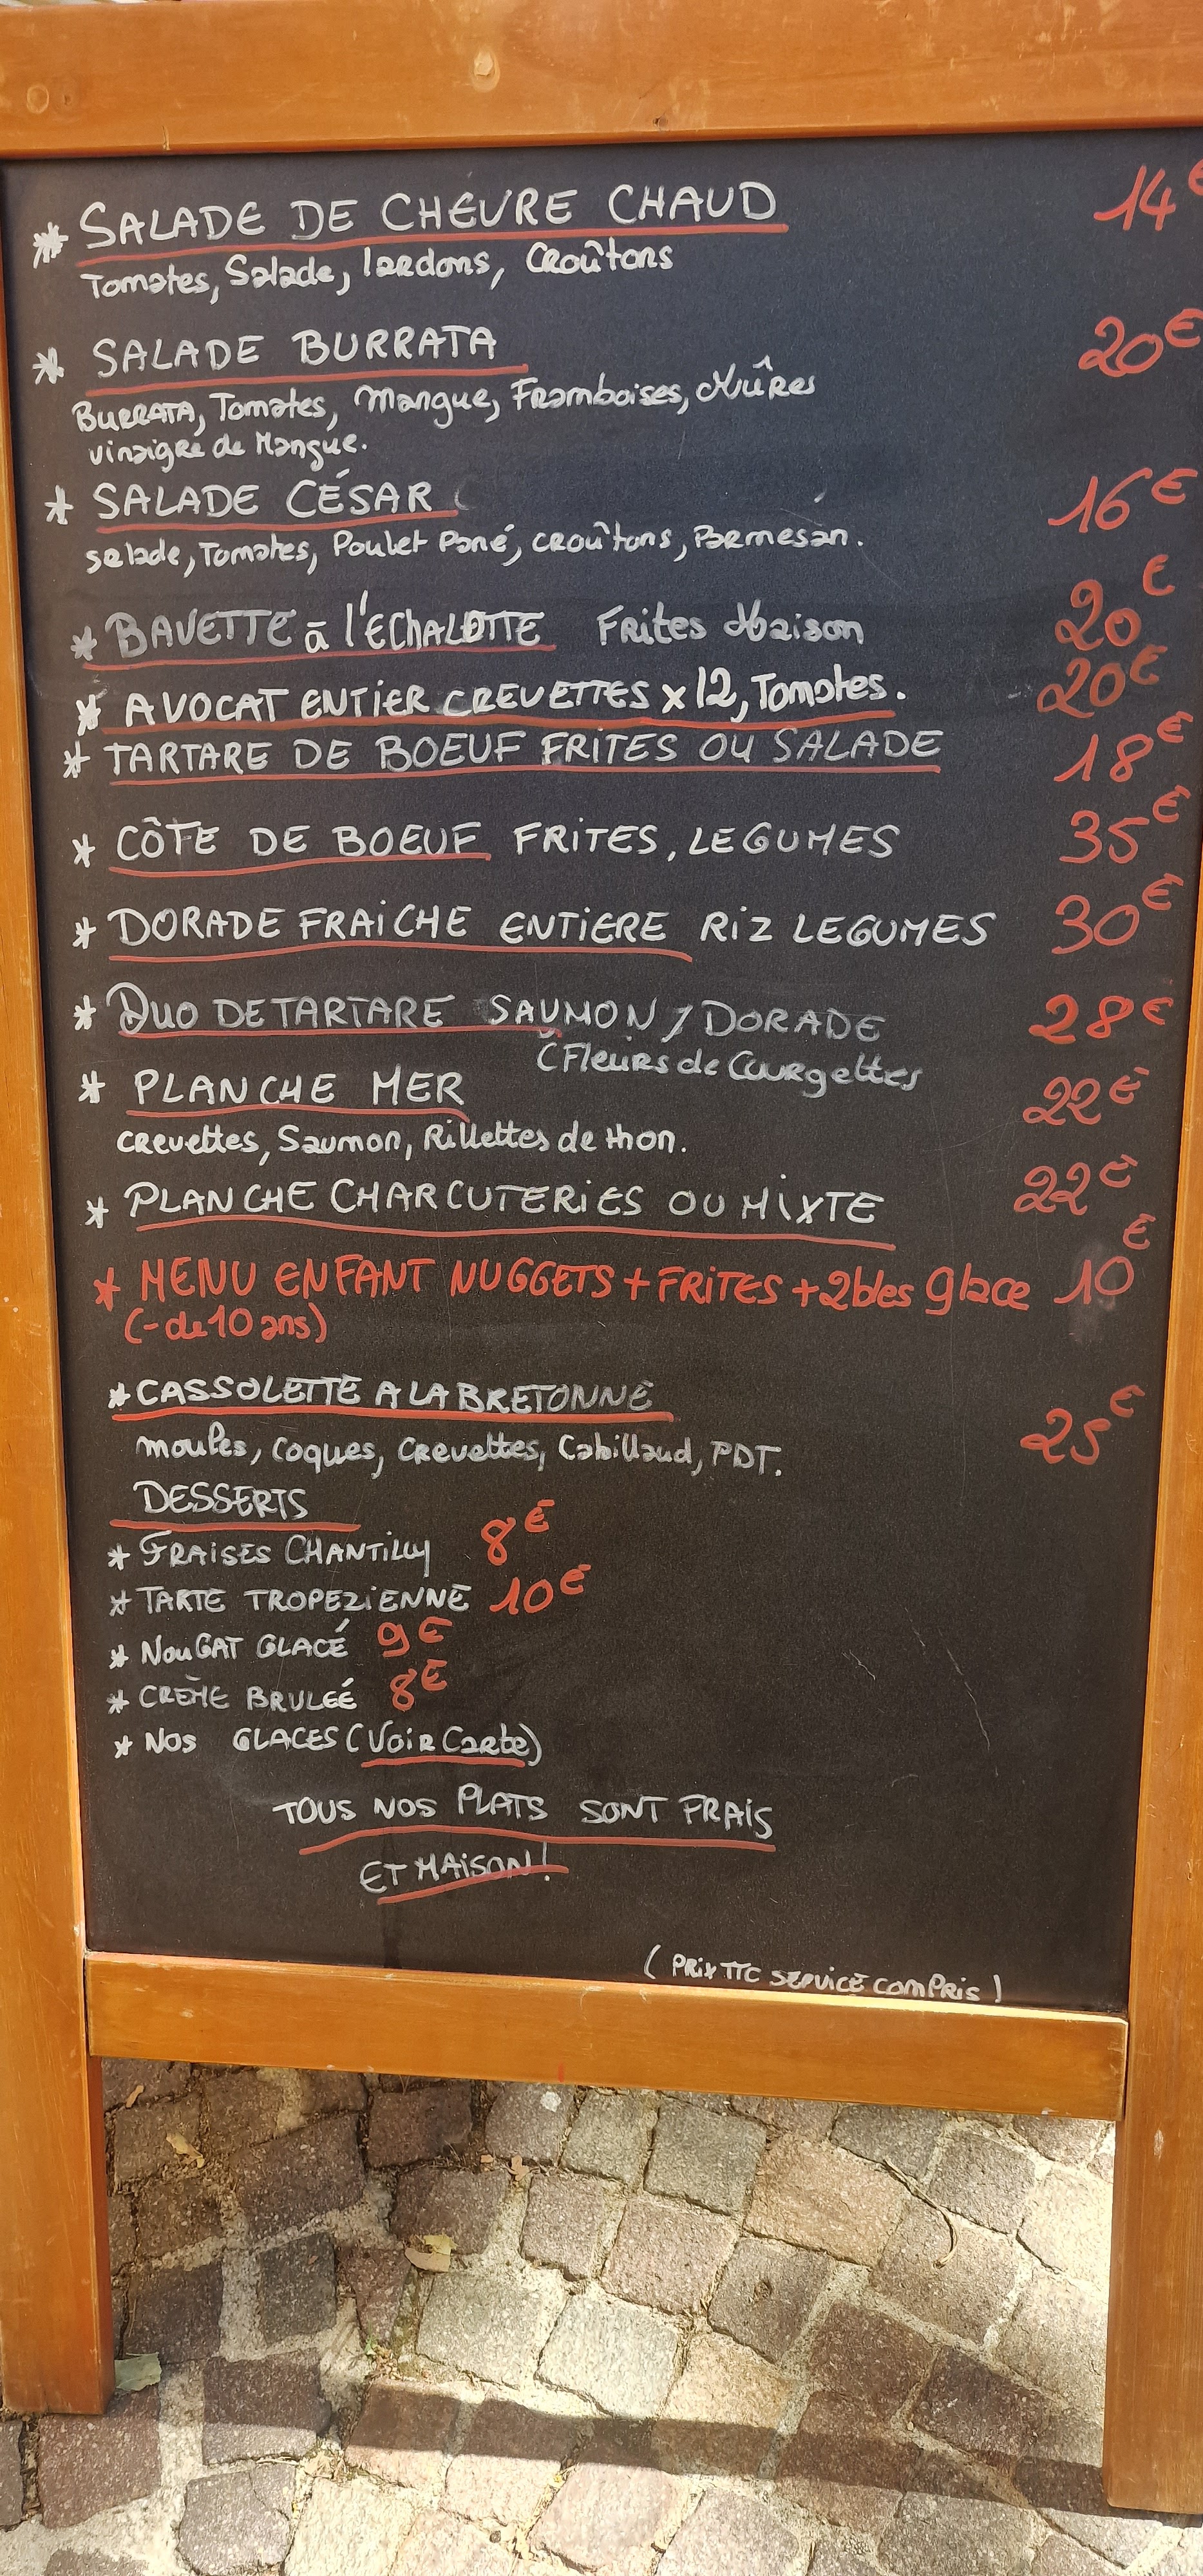 * SALADE DE CHEVRE CHAUD 14€
Tomates, Salade, lardons, Croûtons
* SALADE BURRATA 20€
BURRATA, Tomates, Mangue, Framboises, Mûres
vinaigre de Mangue.
* SALADE CÉSAR 16€
salade, Tomates, Poulet Pané, croûtons, Parmesan.
* BAVETTE à l'ECHALOTTE Frites Maison 20€
* AVOCAT ENTIER CREVETTES x 12, Tomates. 20€
* TARTARE DE BOEUF FRITES OU SALADE 18€
* CÔTE DE BOEUF FRITES, LEGUMES 35€
* DORADE FRAICHE ENTIERE RIZ LEGUMES 30€
* DUO DE TARTARE SAUMON / DORADE 28€
(Fleurs de Courgettes
* PLANCHE MER 22€
crevettes, Saumon, Rillettes de thon.
* PLANCHE CHARCUTERIES OU MIXTE 22€
* MENU ENFANT NUGGETS + FRITES + 2bles glace 10€
(- de 10 ans)
* CASSOLETTE A LA BRETONNE 25€
moules, coques, crevettes, Cabillaud, PDT.
DESSERTS
* FRAISES CHANTILLY 8€
* TARTE TROPEZIENNE 10€
* NOUGAT GLACÉ 9€
* CRÈME BRULEÉ 8€
* NOS GLACES (Voir Carte)
TOUS NOS PLATS SONT FRAIS
ET MAISON!
(PRIX TTC SERVICE COMPRIS)